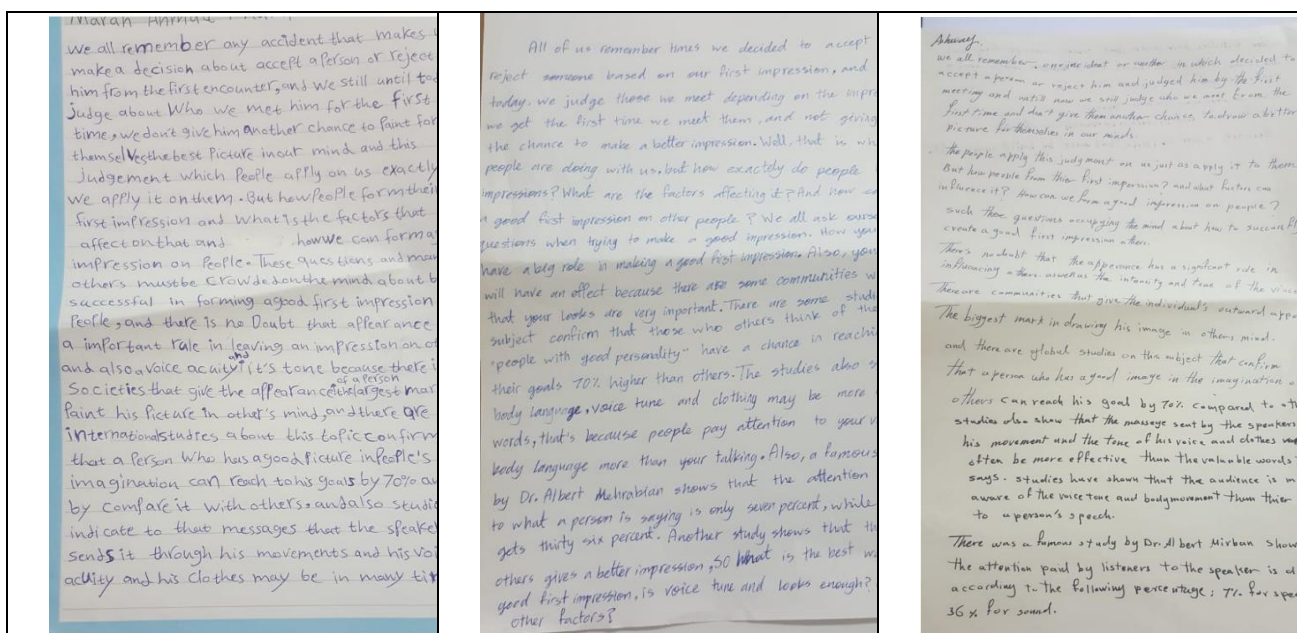 we all remember any accident that makes
make a decision about accept a person or reject
him from the first encounter, and we still until to
judge about Who we met him for the first
time, we don't give him another chance to Paint for
themselves the best Picture in out mind and this
judgement which People apply on us exactly
we apply it on them. But how People form thei
first impression and What is the factors that
affect on that and how we can form a
impression on People. These questions and man
others must be crowded on the mind about b
successful in forming a good first impression
People, and there is no Doubt that appearance
a important rale in leaving an impression on o
and also a voice acuity and it's tone because there i
Societies that give the appearance of a person the largest mar
Paint his Picture in other's mind, and there are
international studies about this topic confirm
that a Person Who has a good Picture in People's
imagination can reach to his goals by 70% a
by compare it with others. and also studi
indicate to that messages that the speake
sends it through his movements and his voi
acuity and his clothes may be in many ti
All of us remember times we decided to accept
reject someone based on our first impression, and
today. we judge those we meet depending on the impr
we get the first time we meet them, and not giving
the chance to make a better impression. Well, that is wh
people are doing with us, but how exactely do people
impressions? What are the factors affecting it? And how
a good fist impression on other people? We all ask ourse
questions when trying to make a good impression. How your
have a big role in making a good fist impression. Also, your
will have an effect because there are some communities w
that your looks are very important. There are some studi
subject confirm that those who others think of the
"people with good personality" have a chance in reachi
their goals 70% higher than others. The studies also s
body language, voice tune and clothing may be more
words, that's because people pay attention to your v
body language more than your talking. Also, a famous
by Dr. Albert Mehrabian shows that the attention
to what a person is saying is only seven percent, while
gets thirty six percent. Another study shows that th
others gives a better impression, so what is the best w
good first impression, is voice tune and looks enough?
other factors?
we all remember, one incident or another in which decided to
accept a person or reject him and judged him by the first
meeting and until now we still judge who we meet from the
first time and don't give them another chance, to draw a better
picture for themselies in our minds.
the people apply this judgment on us just as apply it to them
But how people from thier first impression? and what factors can
influence it? How can we form a good impression on people?
such these questions occupying the mind about how to successf
create a good first impression others.
There's no doubt that the apperance has a significant role in
influencing others as well as the intensity and tone of the voice
There are communities that give the individual's outward appe
The biggest mark in drawing his image in others mind.
and there are global studies on this subject that confirm
that a person who has a good image in the imagination o
others can reach his goal by 70% compared to oth
studies also show that the massege sent by the speakers
his movement and the tone of his voice and clothes
often be more effective than the valuable words
says. studies have shown that the audience is m
aware of the voice tone and body movement than thier
to a person's speech.
There was a famous study by Dr. Albert Mirban show
the attention paid by listeners to the speaker is d
according to the following percentage: 7% for spee
36% for sound.